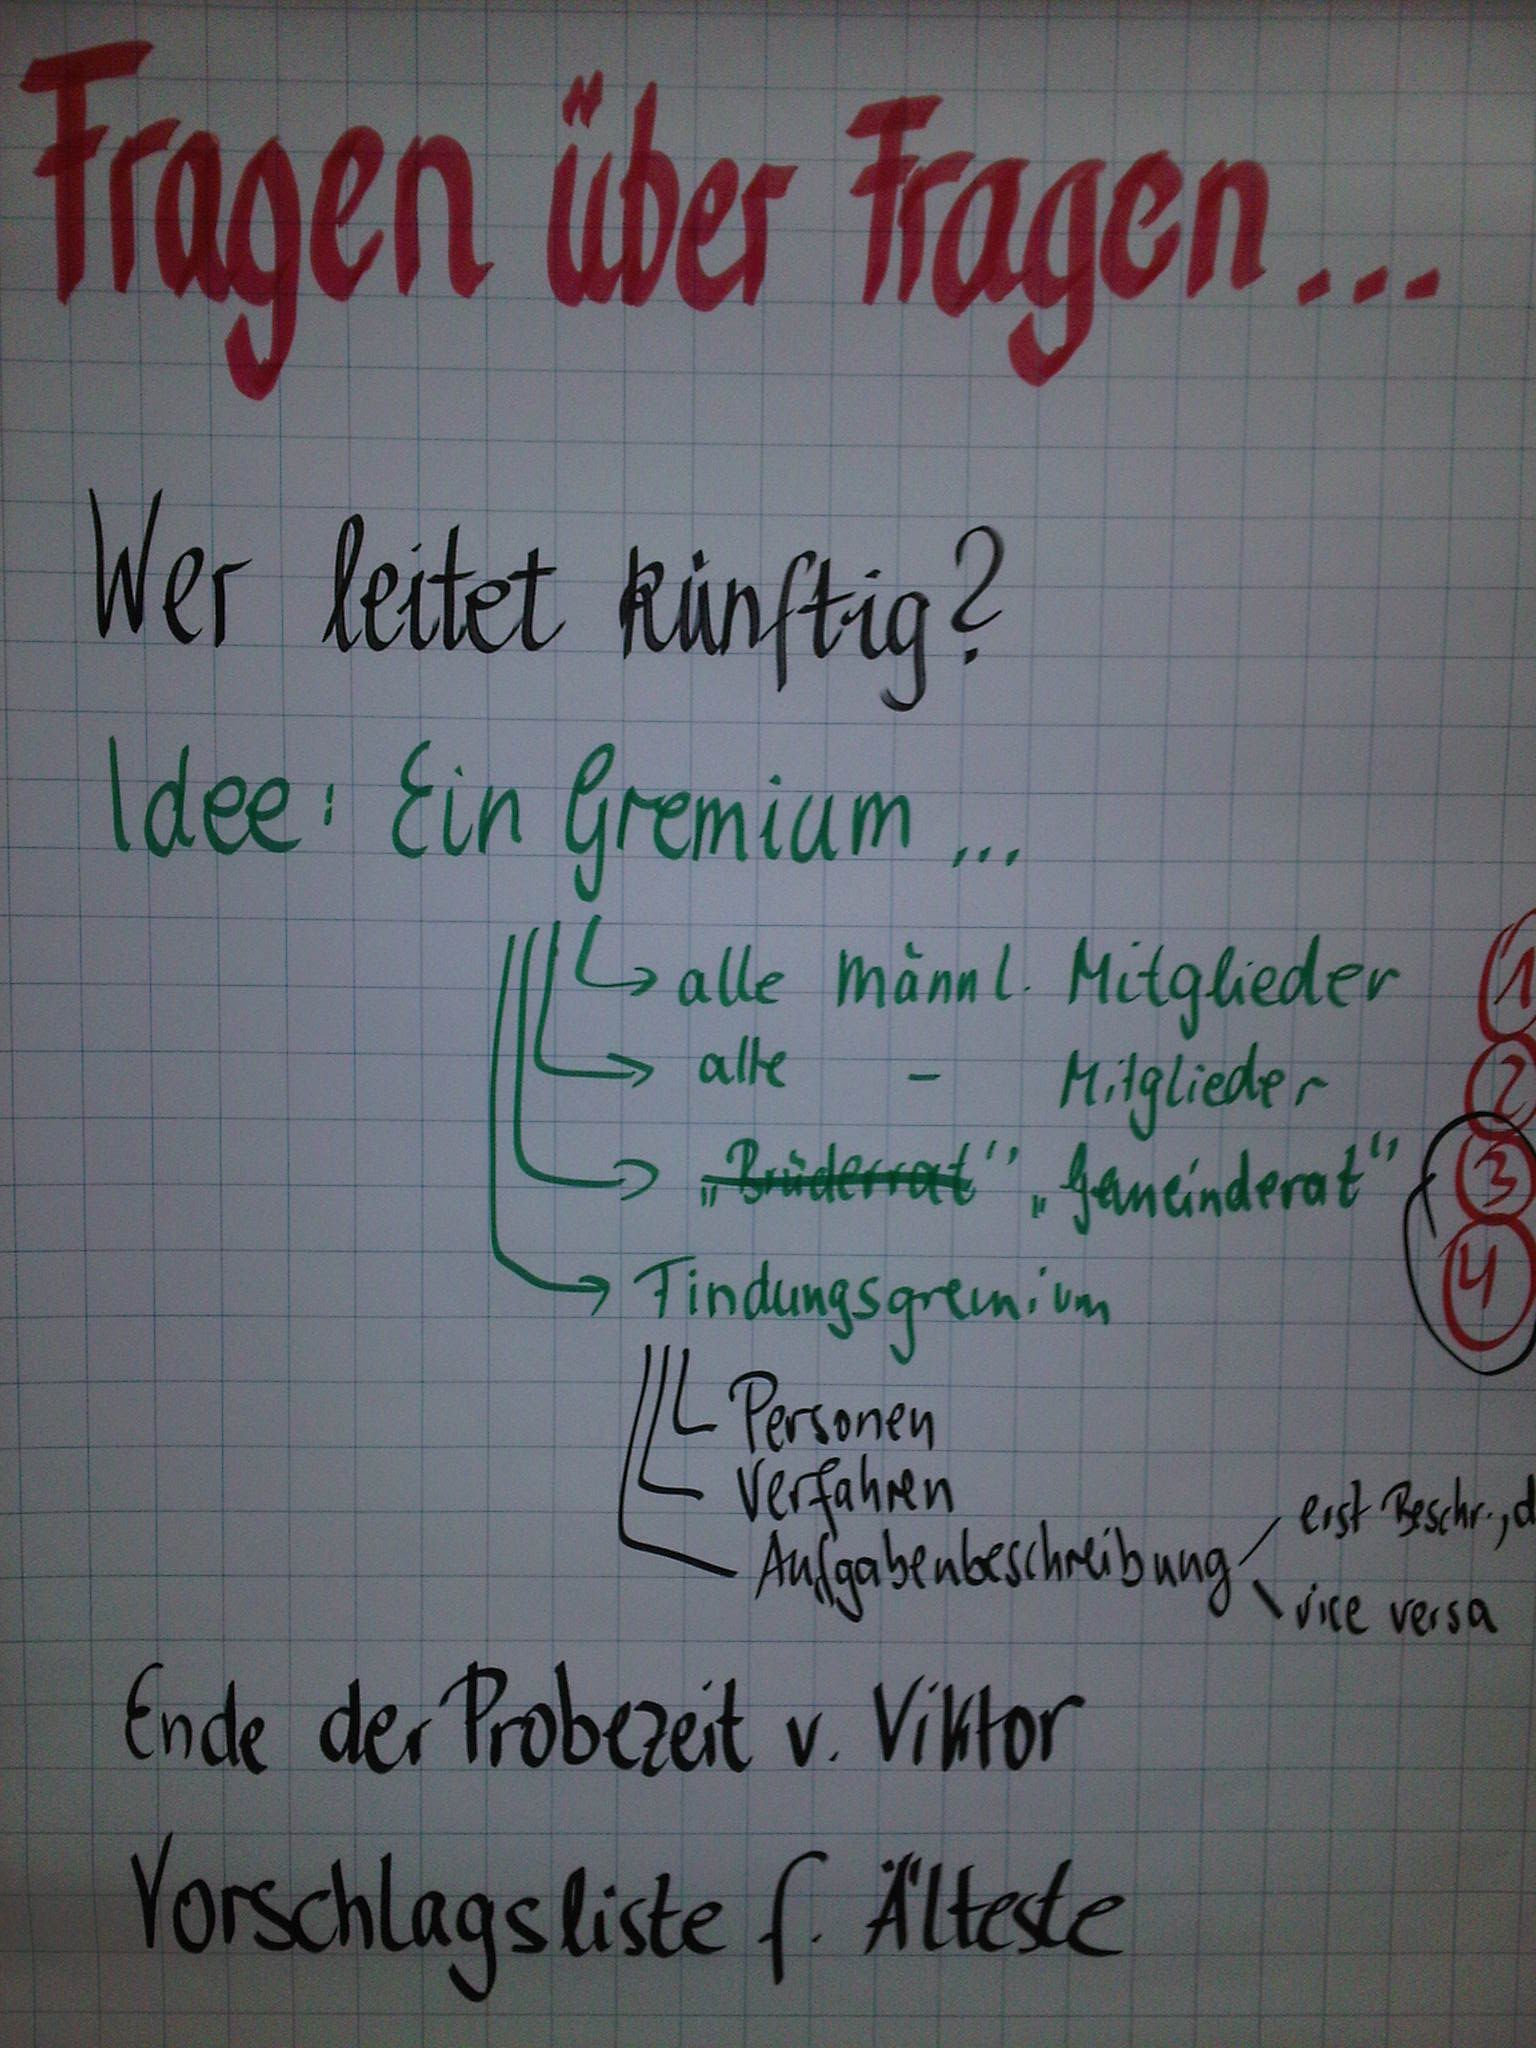 Fragen über Fragen...
Wer leitet künftig?
Idee: Ein Gremium ...
alle männl. Mitglieder 1
alle - Mitglieder 2
„Brüderrat" „Gemeinderat" 3
Findungsgremium 4
Personen
Verfahren
erst Beschr., d
Aufgabenbeschreibung
vice versa
Ende der Probezeit v. Viktor
Vorschlagsliste f. Älteste